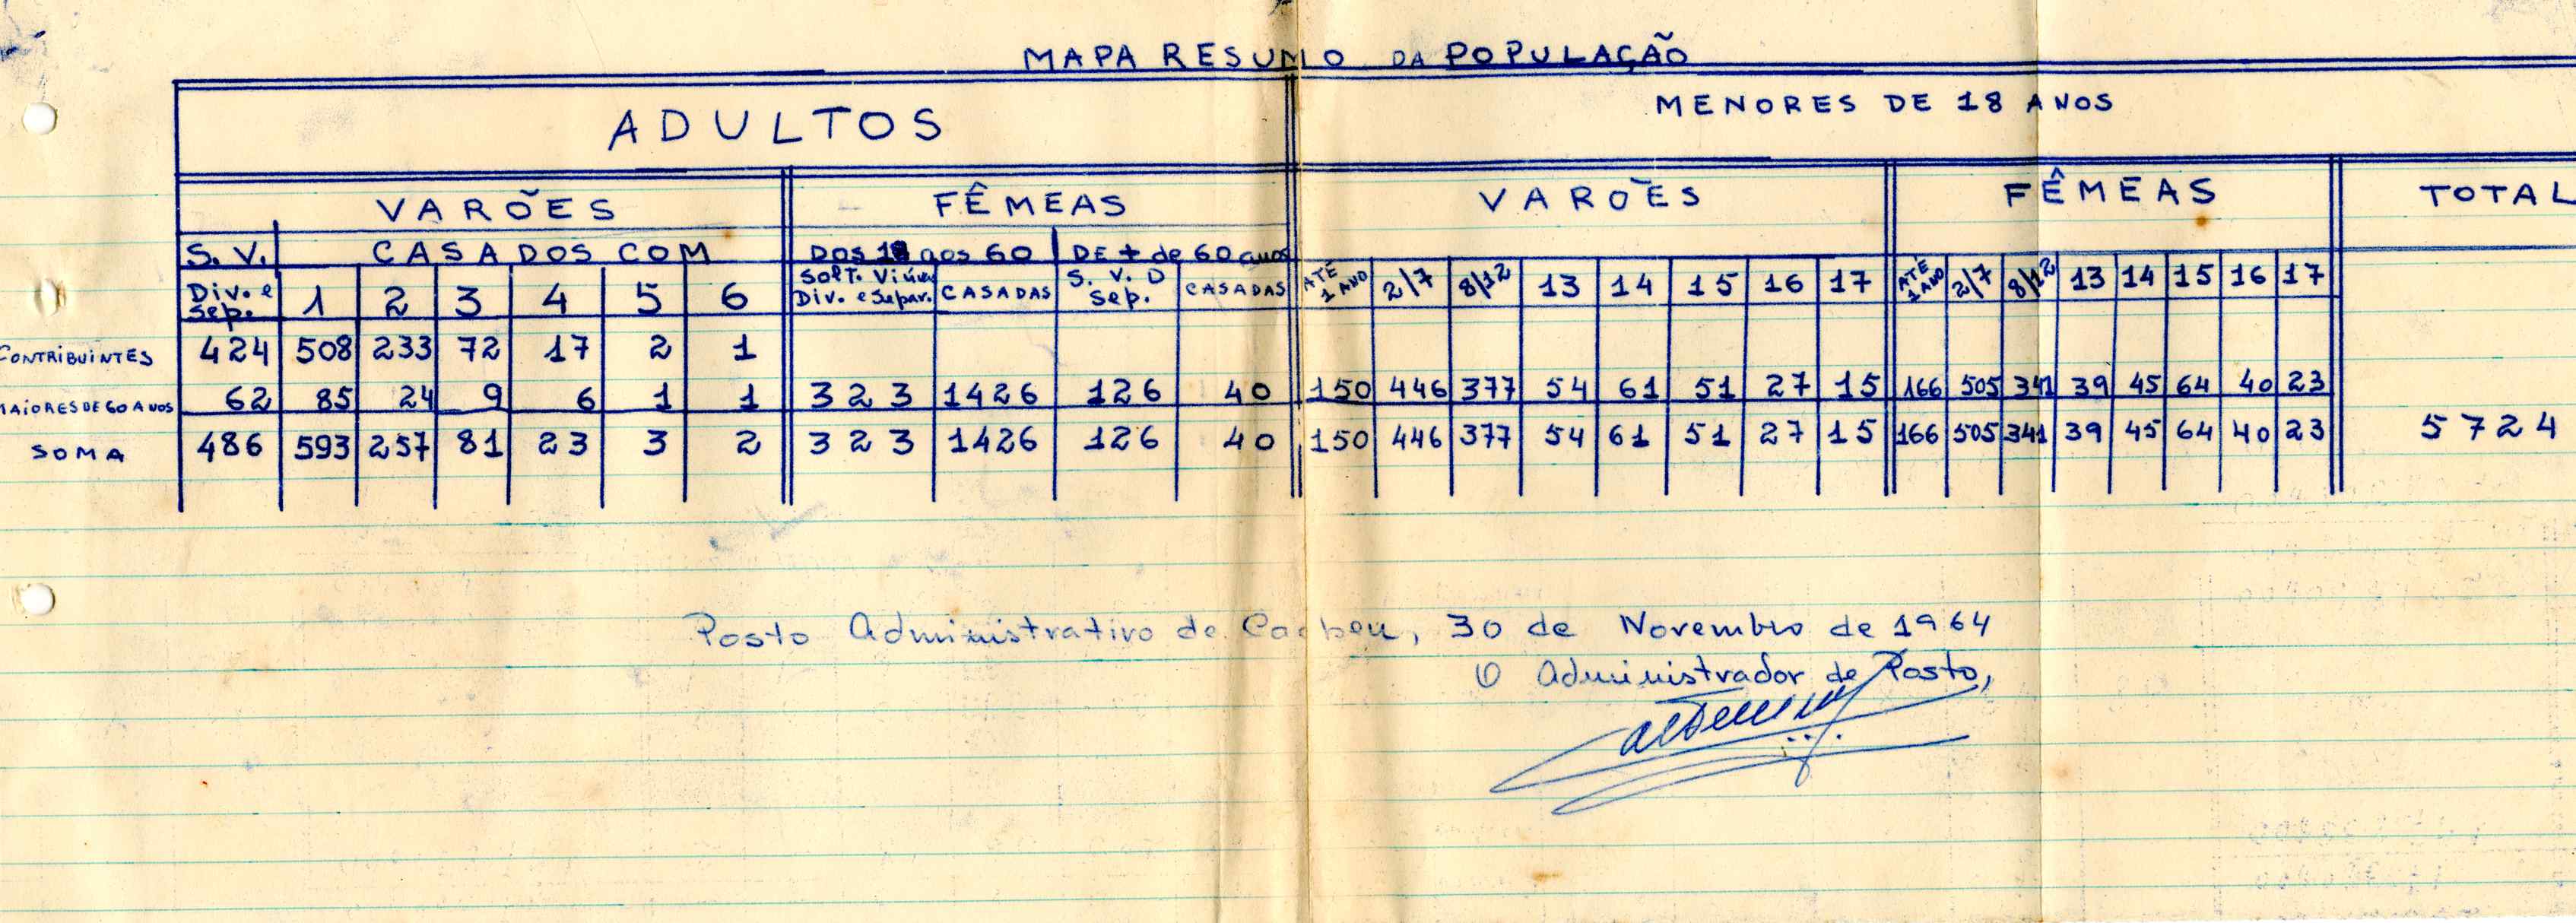 MAPA RESUMO DA POPULAÇÃO
ADULTOS MENORES DE 18 ANOS
VARÕES FÊMEAS VARÕES FÊMEAS TOTAL
S. V. CASADOS COM DOS 18 aos 60 DE + de 60 anos
Div. e Sep. 1 2 3 4 5 6 Solt. Viúvas Div. e Separ. CASADAS S. V. D Sep. CASADAS ATÉ 1 ANO 2/7 8/12 13 14 15 16 17 ATÉ 1 ANO 2/7 8/12 13 14 15 16 17
CONTRIBUINTES 424 508 233 72 17 2 1
MAIORES DE 60 ANOS 62 85 24 9 6 1 1 323 1426 126 40 150 446 377 54 61 51 27 15 166 505 341 39 45 64 40 23
SOMA 486 593 257 81 23 3 2 323 1426 126 40 150 446 377 54 61 51 27 15 166 505 341 39 45 64 40 23 5724
Posto Administrativo de Cacheu, 30 de Novembro de 1964
O Administrador de Posto,